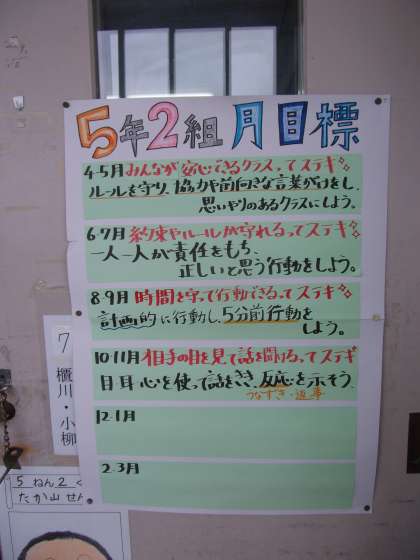 5年2組 月目標
4.5月 みんなが安心できるクラスってステキ
ルールを守り、協力や前向きな言葉がけをし、
思いやりのあるクラスにしよう。
6.7月 約束やルールが守れるってステキ
一人一人が責任をもち、
正しいと思う行動をしよう。
8.9月 時間を守って行動できるってステキ
計画的に行動し、5分前行動を
しよう。
10.11月 相手の目を見て話を聞けるってステキ
目耳心を使って話をきき、反応を示そう。
うなずき・返事
12.1月
2.3月
7
櫃川・小柳
5ねん2く
たか山せん